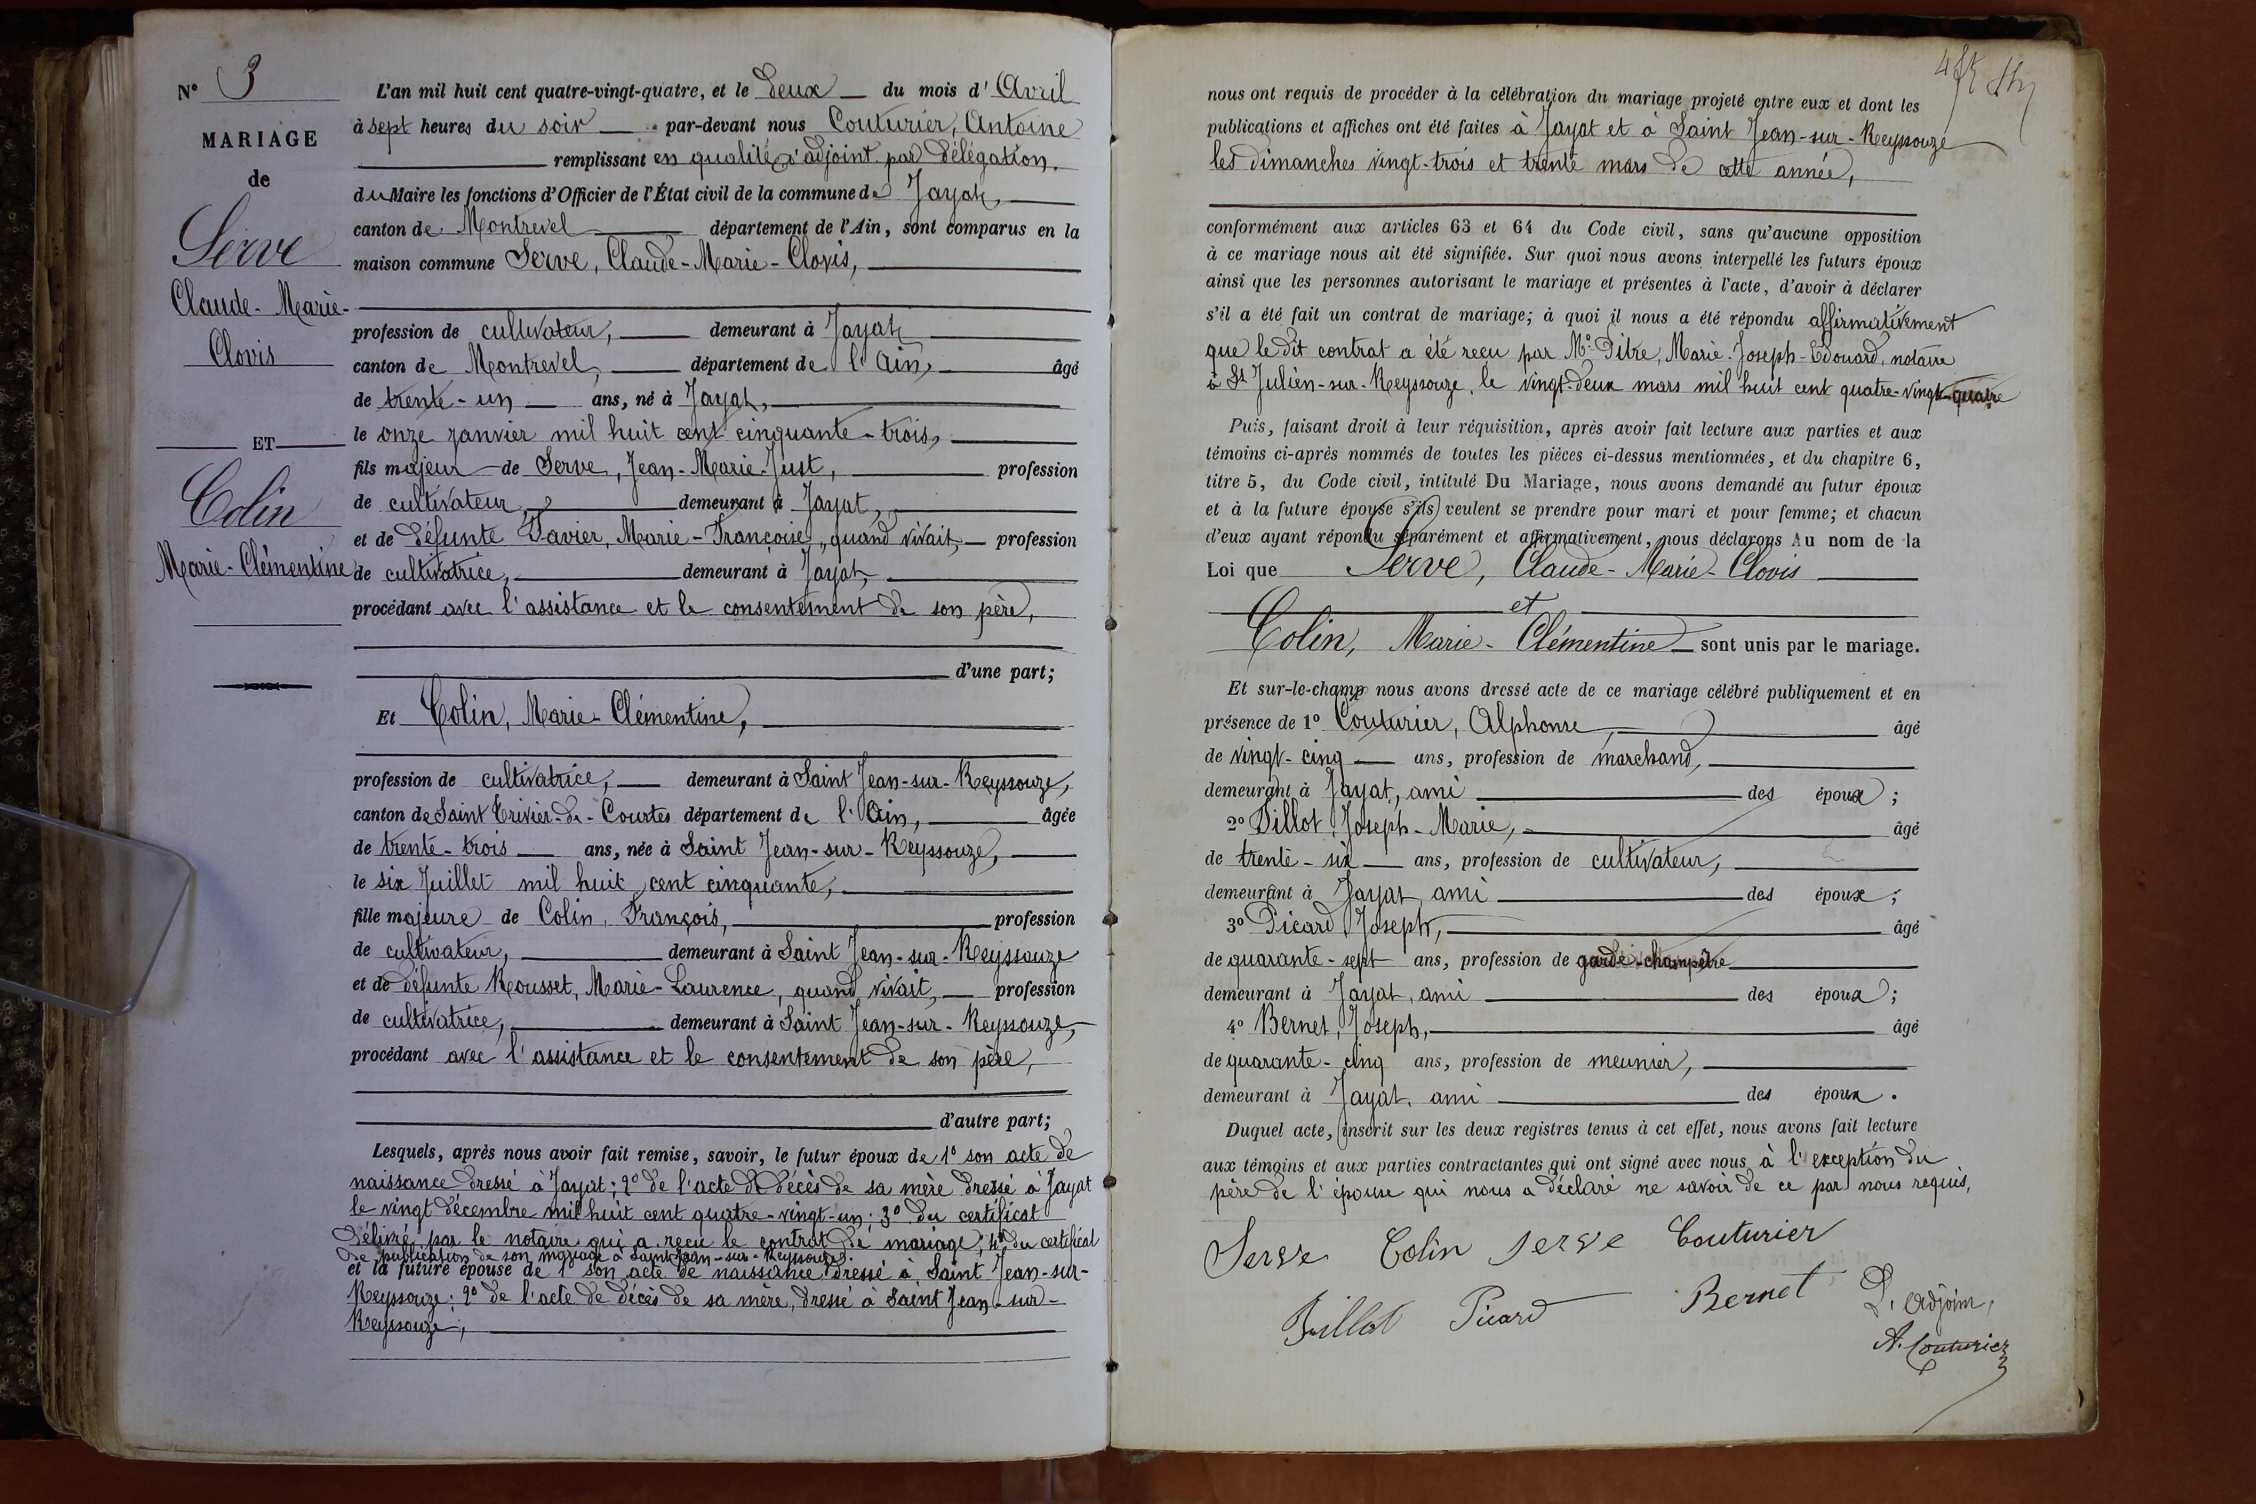 N° 3
MARIAGE
de
Serve
Claude-Marie-
Clovis
ET
Colin
Marie-Clémentine
L'an mil huit cent quatre-vingt-quatre, et le deux du mois d'Avril
à sept heures du soir par-devant nous Couturier, Antoine
remplissant en qualité d'adjoint par délégation.
du Maire les fonctions d'Officier de l'État civil de la commune de Jayat,
canton de Montrevel département de l'Ain, sont comparus en la
maison commune Serve, Claude-Marie-Clovis,
profession de cultivateur, demeurant à Jayat
canton de Montrevel, département de l'Ain, âgé
de trente-un ans, né à Jayat,
le onze janvier mil huit cent cinquante-trois,
fils majeur de Serve, Jean-Marie-Just, profession
de cultivateur, demeurant à Jayat,
et de défunte Favier, Marie-Françoise, quand vivait, profession
de cultivatrice, demeurant à Jayat,
procédant avec l'assistance et le consentement de son père,
d'une part;
Et Colin, Marie-Clémentine,
profession de cultivatrice, demeurant à Saint Jean-sur-Reyssouze,
canton de Saint Trivier-de-Courtes département de l'Ain, âgée
de trente-trois ans, née à Saint Jean-sur-Reyssouze,
le six Juillet mil huit cent cinquante,
fille majeure de Colin, François, profession
de cultivateur, demeurant à Saint Jean-sur-Reyssouze
et de défunte Rousset, Marie-Laurence, quand vivait, profession
de cultivatrice, demeurant à Saint Jean-sur-Reyssouze,
procédant avec l'assistance et le consentement de son père,
d'autre part;
Lesquels, après nous avoir fait remise, savoir, le futur époux de 1° son acte de
naissance dressé à Jayat; 2° de l'acte de décès de sa mère dressé à Jayat
le vingt décembre mil huit cent quatre-vingt-un; 3° du certificat
délivré par le notaire qui a reçu le contrat de mariage, 4° du certificat
de publication de son mariage à Saint Jean-sur-Reyssouze.
et la future épouse de 1° son acte de naissance dressé à Saint Jean-sur-
Reyssouze; 2° de l'acte de décès de sa mère, dressé à Saint Jean-sur-
Reyssouze;
nous ont requis de procéder à la célébration du mariage projeté entre eux et dont les
publications et affiches ont été faites à Jayat et à Saint Jean-sur-Reyssouze
les dimanches vingt-trois et trente mars de cette année,
conformément aux articles 63 et 64 du Code civil, sans qu'aucune opposition
à ce mariage nous ait été signifiée. Sur quoi nous avons interpellé les futurs époux
ainsi que les personnes autorisant le mariage et présentes à l'acte, d'avoir à déclarer
s'il a été fait un contrat de mariage; à quoi il nous a été répondu affirmativement
que le dit contrat a été reçu par Me Pitre, Marie-Joseph-Edouard, notaire
à St Julien-sur-Reyssouze, le vingt-deux mars mil huit cent quatre-vingt-quatre
Puis, faisant droit à leur réquisition, après avoir fait lecture aux parties et aux
témoins ci-après nommés de toutes les pièces ci-dessus mentionnées, et du chapitre 6,
titre 5, du Code civil, intitulé Du Mariage, nous avons demandé au futur époux
et à la future épouse s'ils veulent se prendre pour mari et pour femme; et chacun
d'eux ayant répondu séparément et affirmativement, nous déclarons Au nom de la
Loi que Serve, Claude-Marie-Clovis
et
Colin, Marie-Clémentine sont unis par le mariage.
Et sur-le-champ nous avons dressé acte de ce mariage célébré publiquement et en
présence de 1° Couturier, Alphonse, âgé
de vingt-cinq ans, profession de marchand,
demeurant à Jayat, ami des époux;
2° Billot, Joseph-Marie, âgé
de trente-six ans, profession de cultivateur,
demeurant à Jayat, ami des époux;
3° Picard Joseph, âgé
de quarante-sept ans, profession de garde-champêtre
demeurant à Jayat, ami des époux;
4° Bernet, Joseph, âgé
de quarante-cinq ans, profession de meunier,
demeurant à Jayat, ami des époux.
Duquel acte, inscrit sur les deux registres tenus à cet effet, nous avons fait lecture
aux témoins et aux parties contractantes qui ont signé avec nous à l'exception du
père de l'épouse qui nous a déclaré ne savoir de ce par nous requis,
Serve Colin Serve Couturier
Billot Picard Bernet L'adjoint,
A. Couturier